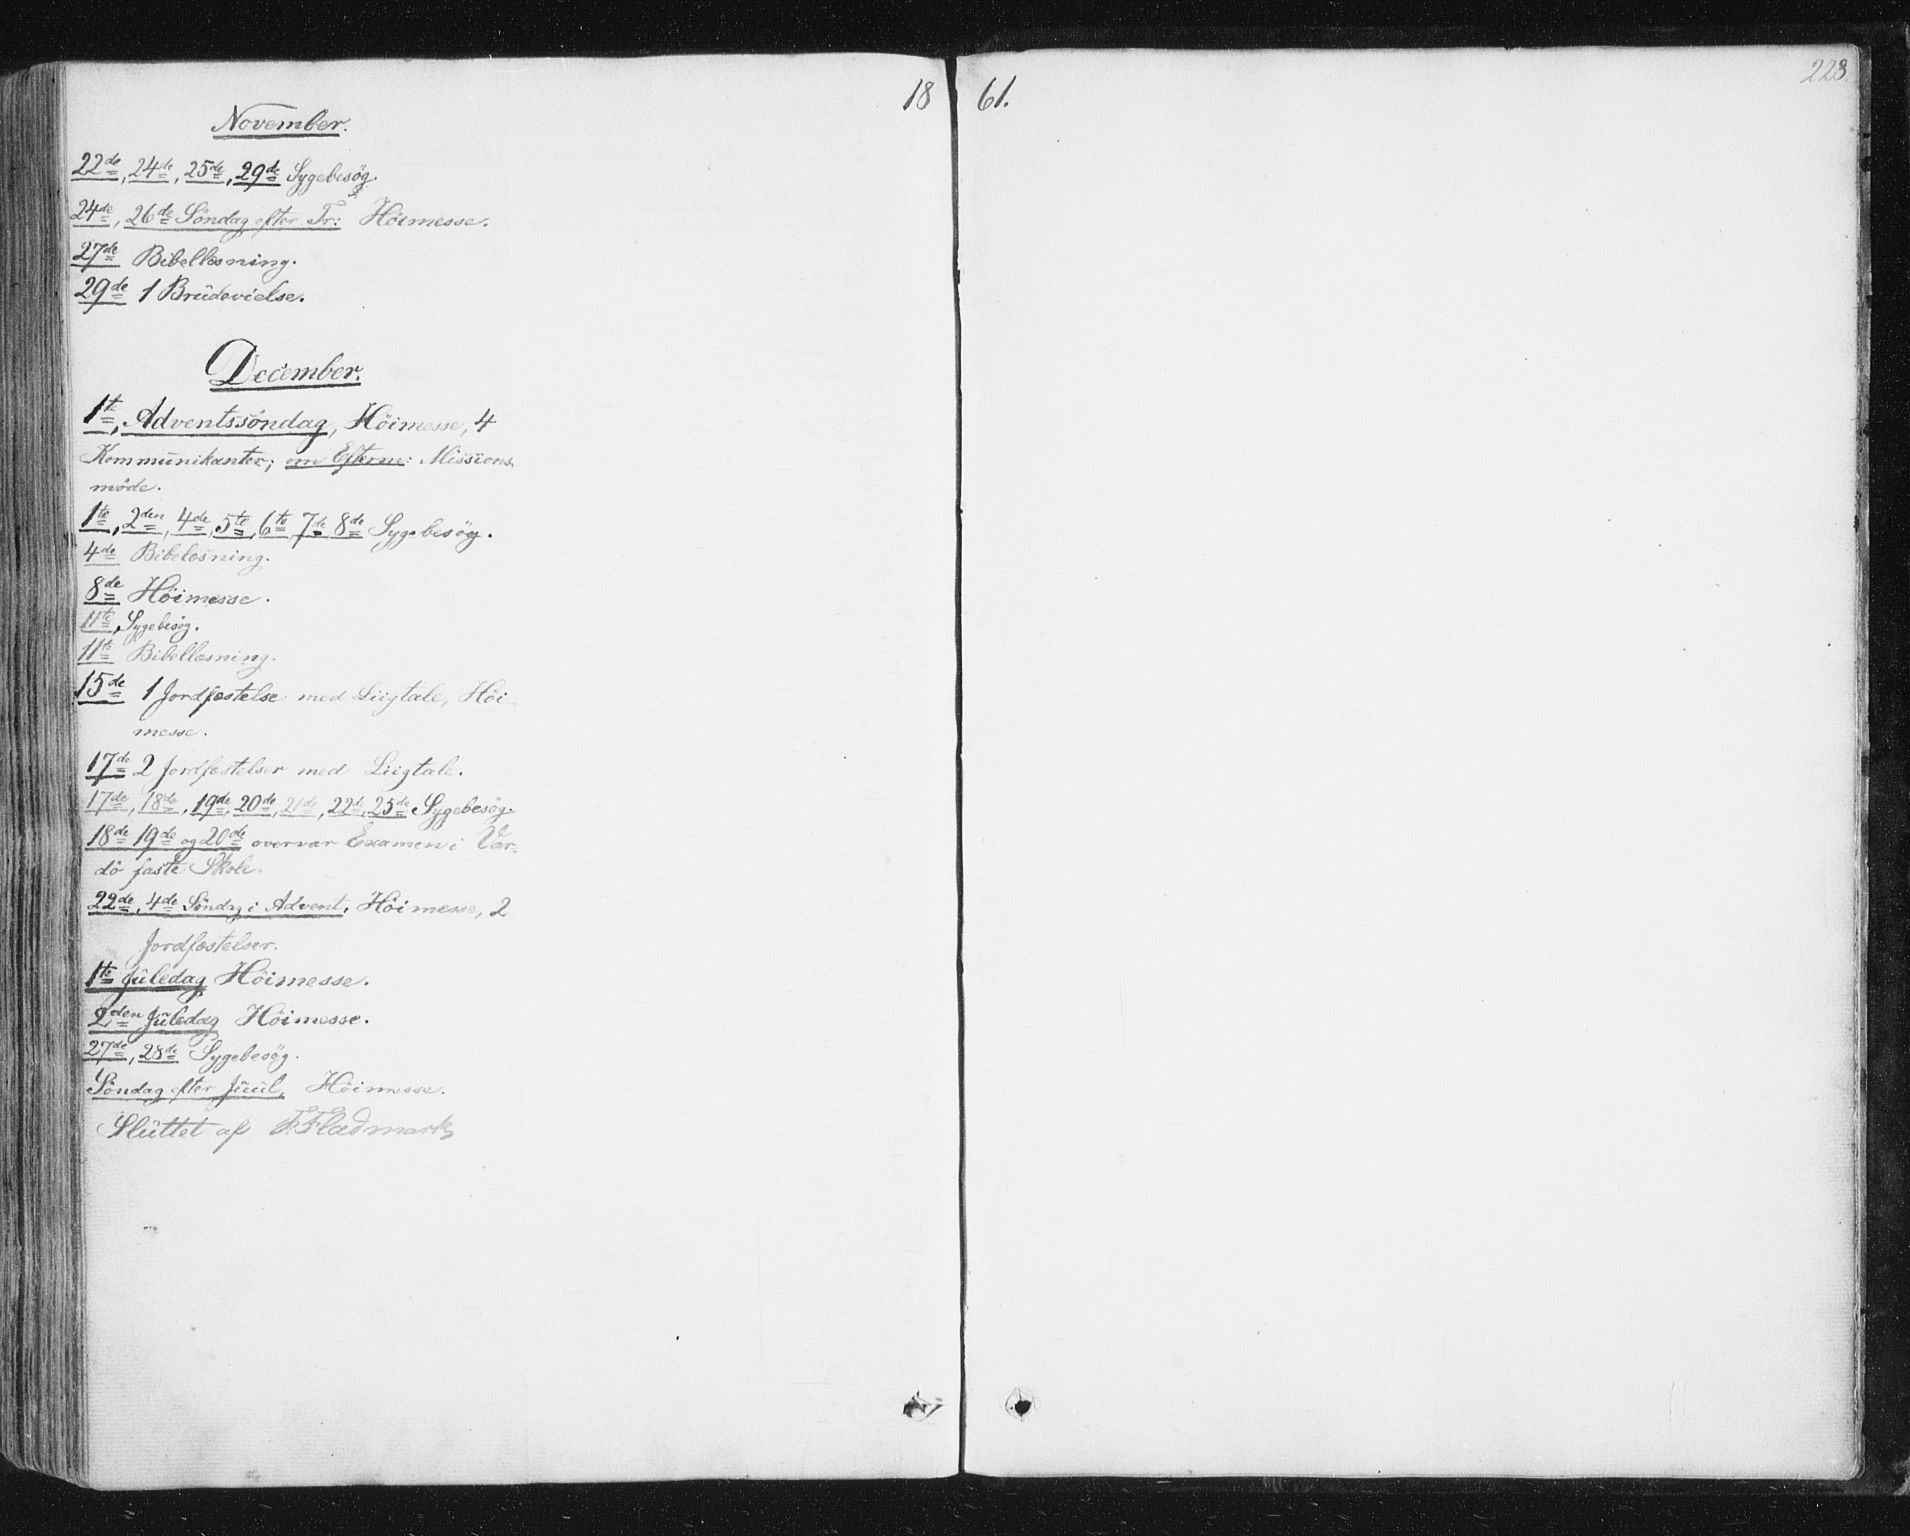 1861.
223.
November.
22de, 24de, 25de, 29de Sygebesøg.
24de, 26de Söndag efter Tr: Höimesse.
27de Bibellæsning.
29de 1 Brüdevielse.
December.
1te, Adventssöndag, Höimesse, 4
Kommünikanter; om Efterm: Missions-
möde.
1te, 2den, 4de, 5te, 6te, 7de 8de Sygebesøg.
4de Bibelæsning.
8de Höimesse.
11te, Sygebesøg.
11te Bibellæsning.
15de 1 Jordfæstelse med Liigtale, Höi-
messe.
17de 2 Jordfæstelser med Liigtale.
17de, 18de, 19de, 20de, 21de, 22de, 25de Sygebesøg.
18de 19de og 20de overvar Examen i Var-
dö faste Skole.
22de, 4de Söndag i Advent, Höimesse, 2
Jordfæstelser.
1te Jüledag Höimesse.
2den Jüledag Höimesse.
27de, 28de Sygebesøg.
Söndag efter Jüül, Höimesse.
Slüttet af F. Fladmark